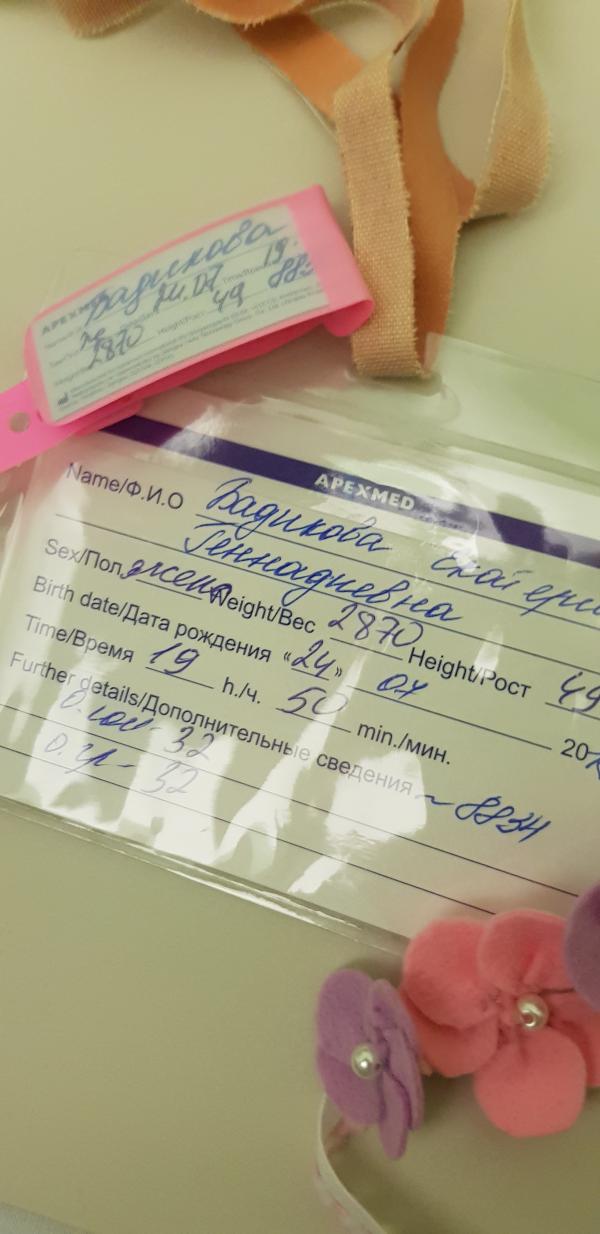 APEXMED
Вадикова
24.07 19
49 883
2870
APEXMED
Name/Ф.И.О Вадикова Екатери
Геннадиевна
Sex/Пол жен Weight/Вес 2870 Height/Рост 49
Birth date/Дата рождения «24» 07 20
Time/Время 19 h./ч. 50 min./мин.
Further details/Дополнительные сведения 8834
32
о.гр - 32